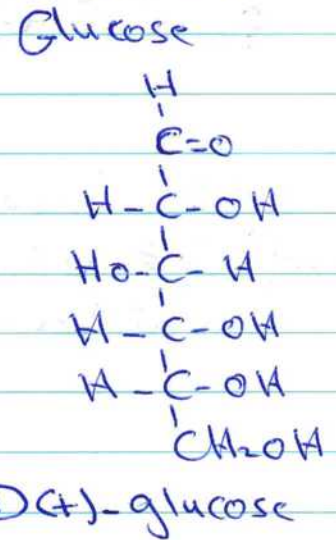 Glucose
H
C=O
H-C-OH
HO-C-H
H-C-OH
H-C-OH
CH2OH
D(+)-glucose